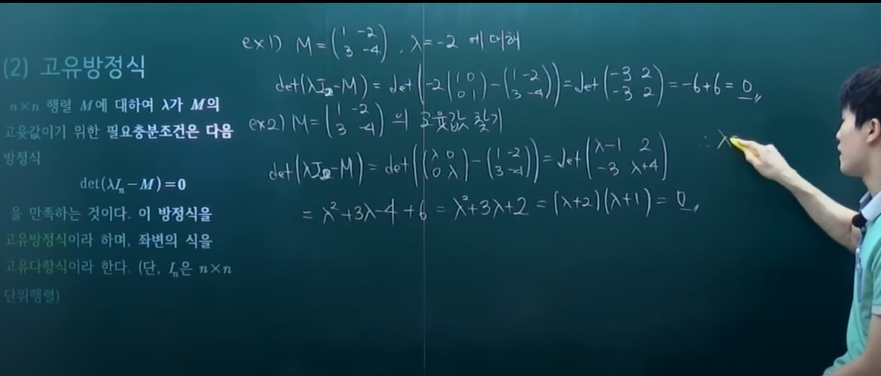 (2) 고유방정식
n×n 행렬 M에 대하여 λ가 M의
고윳값이기 위한 필요충분조건은 다음
방정식
det(λIₙ−M)=0
을 만족하는 것이다. 이 방정식을
고유방정식이라 하며, 좌변의 식을
고유다항식이라 한다. (단, Iₙ은 n×n
단위행렬)
ex1) M=(1 -2 / 3 -4), λ=-2 에 대해
det(λI₂-M)=det(-2(1 0 / 0 1)-(1 -2 / 3 -4))=det(-3 2 / -3 2)=-6+6=0
ex2) M=(1 -2 / 3 -4)의 고윳값 찾기
det(λI₂-M)=det((λ 0 / 0 λ)-(1 -2 / 3 -4))=det(λ-1 2 / -3 λ+4)
=λ²+3λ-4+6=λ²+3λ+2=(λ+2)(λ+1)=0
∴ λ